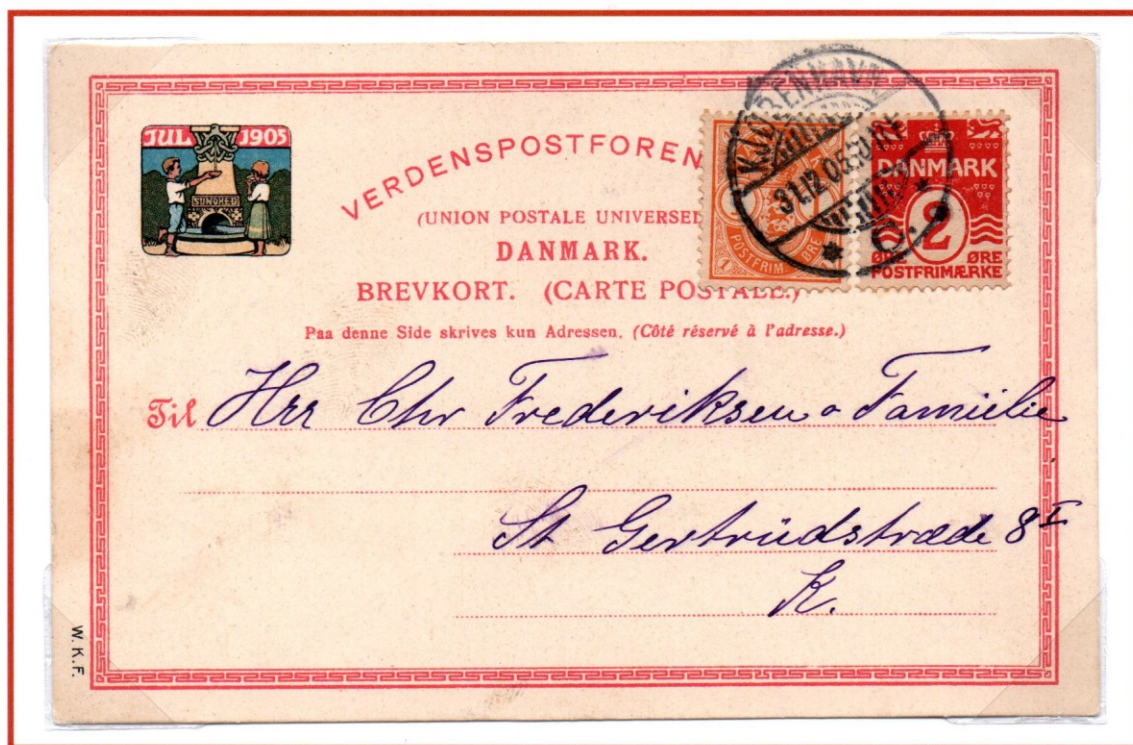 JUL 1905
SUNDHED
VERDENSPOSTFOREN
(UNION POSTALE UNIVERSEL
DANMARK.
BREVKORT. (CARTE POSTALE.)
Paa denne Side skrives kun Adressen. (Côté réservé à l'adresse.)
KJØBENHAVN
31.12.05
C.
1 POSTFRIM ØRE
DANMARK
2
ØRE ØRE
POSTFRIMÆRKE
Til Hrr Chr Frederiksen o Familie
St Gertrudstræde 8 I
K.
W.K.F.